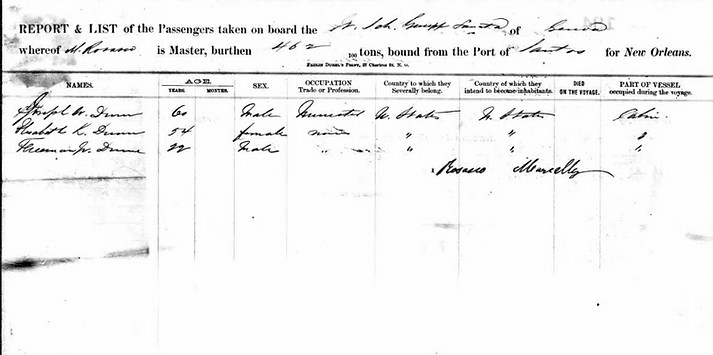 REPORT & LIST of the Passengers taken on board the of
whereof M. Rosasco is Master, burthen 462 100 tons, bound from the Port of Santos for New Orleans.
NAMES. AGE. SEX. OCCUPATION Country to which they Country of which they DIED PART OF VESSEL
YEARS. MONTHS. Trade or Profession. Severally belong. intend to become inhabitants. ON THE VOYAGE. occupied during the voyage.
Joseph W. Dunn 60 Male U. States U. States Cabin
Elisabeth K. Dunn 54 female none " " "
W. Dunn 22 Male " " " " "
Rosasco